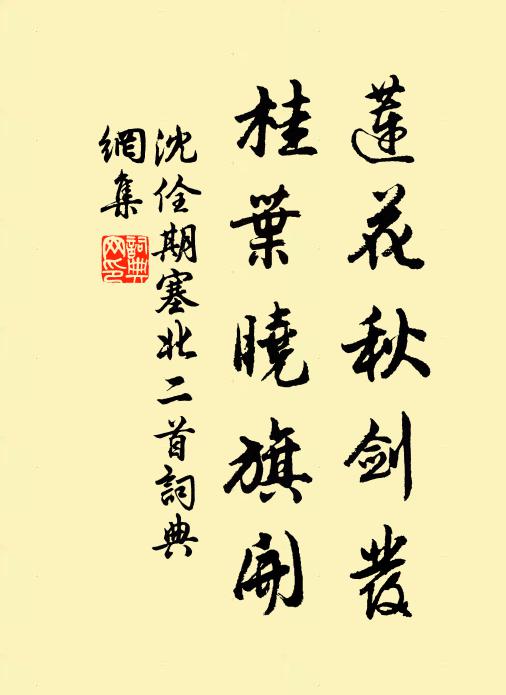 蓮花秋剑發
桂葉曉旗開
沈佺期塞北二首詞典
網集
詞典网印